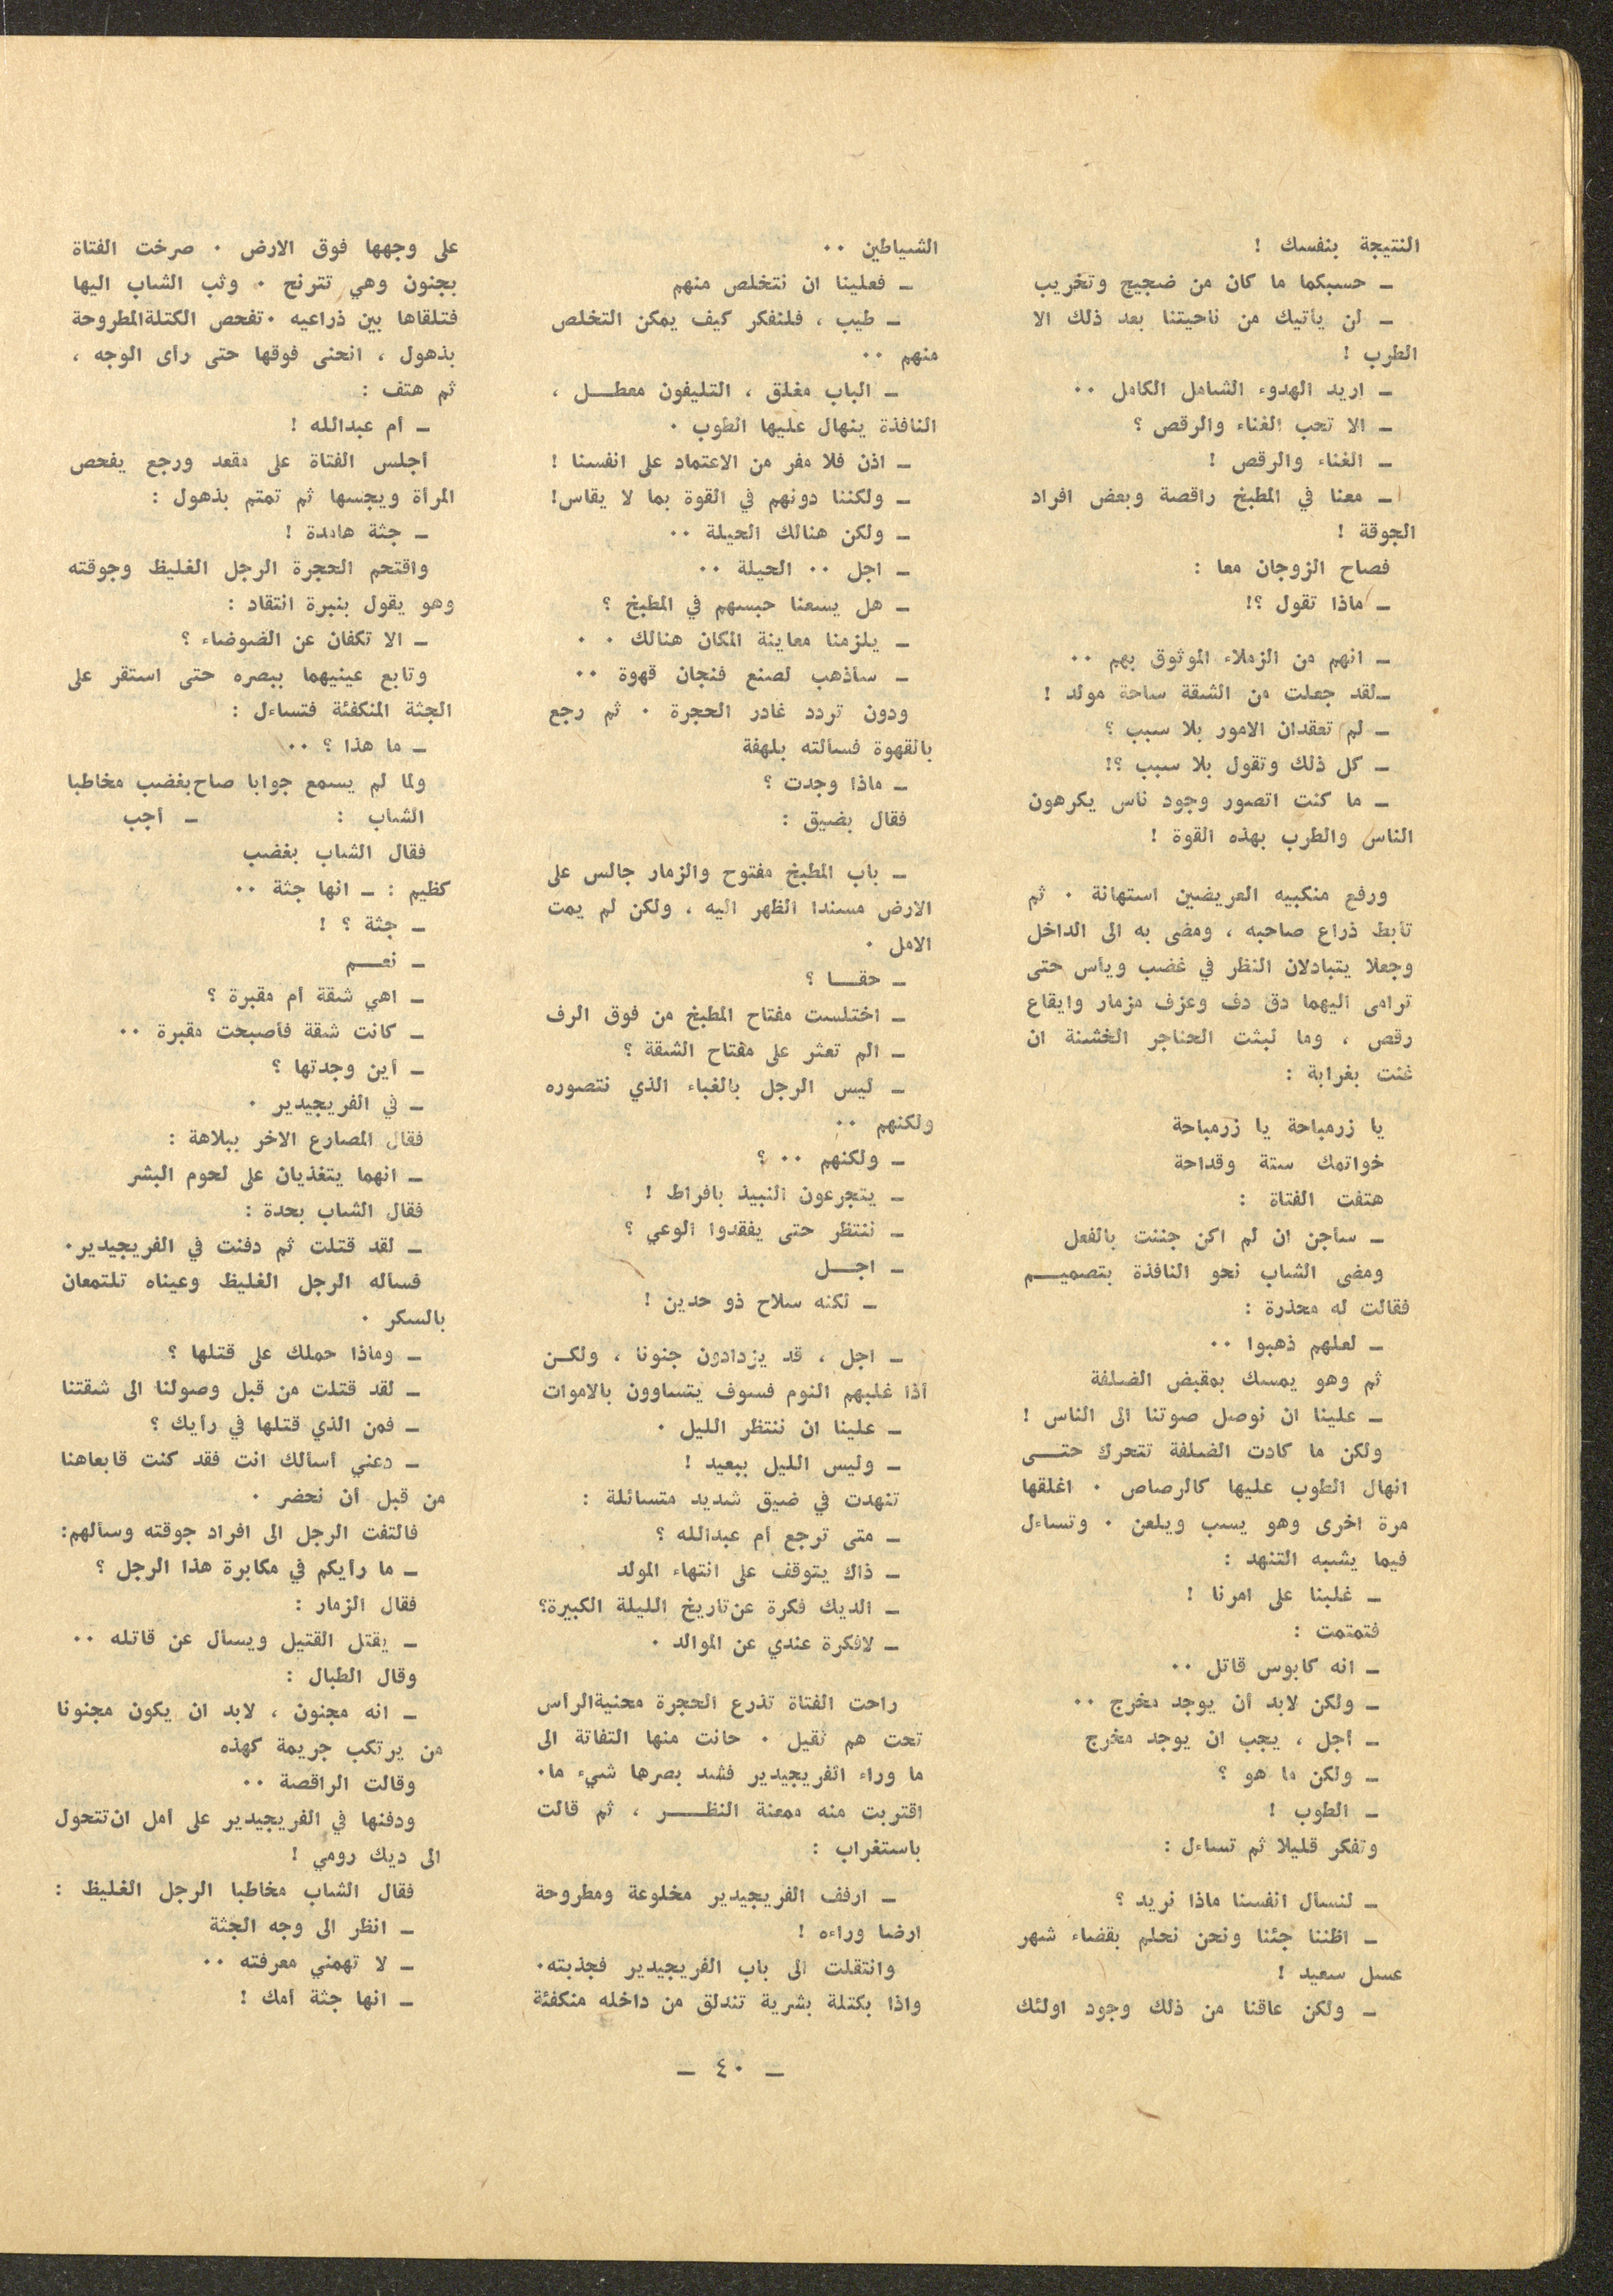 النتيجة بنفسك !
ـ حسبكما ما كان من ضجيج وتخريب
ـ لن يأتيك من ناحيتنا بعد ذلك الا
الطرب !
ـ اريد الهدوء الشامل الكامل ٠٠
ـ الا تحب الغناء والرقص ؟
ـ الغناء والرقص !
ـ معنا في المطبخ راقصة وبعض افراد
الجوقة !
فصاح الزوجان معا :
ـ ماذا تقول ؟!
ـ انهم من الزملاء الموثوق بهم ٠٠
ـ لقد جعلت من الشقة ساحة مولد !
ـ لم تعقدان الامور بلا سبب ؟
ـ كل ذلك وتقول بلا سبب ؟!
ـ ما كنت اتصور وجود ناس يكرهون
الناس والطرب بهذه القوة !
ورفع منكبيه العريضين استهانة ٠ ثم
تأبط ذراع صاحبه ، ومضى به الى الداخل
وجعلا يتبادلان النظر في غضب ويأس حتى
ترامى اليهما دق دف وعزف مزمار وايقاع
رقص ، وما لبثت الحناجر الخشنة ان
غنت بغرابة :
يا زرمباحة يا زرمباحة
خواتمك ستة وقداحة
هتفت الفتاة :
ـ سأجن ان لم اكن جننت بالفعل
ومضى الشاب نحو النافذة بتصميم
فقالت له محذرة :
ـ لعلهم ذهبوا ٠٠
ثم وهو يمسك بمقبض الضلفة
ـ علينا ان نوصل صوتنا الى الناس !
ولكن ما كادت الضلفة تتحرك حتى
انهال الطوب عليها كالرصاص ٠ اغلقها
مرة اخرى وهو يسب ويلعن ٠ وتساءل
فيما يشبه التنهد :
ـ غلبنا على امرنا !
فتمتمت :
ـ انه كابوس قاتل ٠٠
ـ ولكن لابد أن يوجد مخرج ٠٠
ـ أجل ، يجب ان يوجد مخرج
ـ ولكن ما هو ؟
ـ الطوب !
وتفكر قليلا ثم تساءل :
ـ لنسأل انفسنا ماذا نريد ؟
ـ اظننا جئنا ونحن نحلم بقضاء شهر
عسل سعيد !
ـ ولكن عاقنا من ذلك وجود اولئك
الشياطين ٠٠
ـ فعلينا ان نتخلص منهم
ـ طيب ، فلنفكر كيف يمكن التخلص
منهم ٠٠
ـ الباب مغلق ، التليفون معطل ،
النافذة ينهال عليها الطوب ٠
ـ اذن فلا مفر من الاعتماد على انفسنا !
ـ ولكننا دونهم في القوة بما لا يقاس!
ـ ولكن هنالك الحيلة ٠٠
ـ اجل ٠٠ الحيلة ٠٠
ـ هل يسعنا حبسهم في المطبخ ؟
ـ يلزمنا معاينة المكان هنالك ٠ ٠
ـ سأذهب لصنع فنجان قهوة ٠٠
ودون تردد غادر الحجرة ٠ ثم رجع
بالقهوة فسألته بلهفة
ـ ماذا وجدت ؟
فقال بضيق :
ـ باب المطبخ مفتوح والزمار جالس على
الارض مسندا الظهر اليه ، ولكن لم يمت
الامل ٠
ـ حقا ؟
ـ اختلست مفتاح المطبخ من فوق الرف
ـ الم تعثر على مفتاح الشقة ؟
ـ ليس الرجل بالغباء الذي نتصوره
ولكنهم ٠٠
ـ ولكنهم ٠٠ ؟
ـ يتجرعون النبيذ بافراط !
ـ ننتظر حتى يفقدوا الوعي ؟
ـ اجل
ـ لكنه سلاح ذو حدين !
ـ اجل ، قد يزدادون جنونا ، ولكن
أذا غلبهم النوم فسوف يتساوون بالاموات
ـ علينا ان ننتظر الليل ٠
ـ وليس الليل ببعيد !
تنهدت في ضيق شديد متسائلة :
ـ متى ترجع أم عبدالله ؟
ـ ذاك يتوقف على انتهاء المولد
ـ الديك فكرة عن تاريخ الليلة الكبيرة؟
ـ لافكرة عندي عن الموالد ٠
راحت الفتاة تذرع الحجرة محنية الرأس
تحت هم ثقيل ٠ حانت منها التفاتة الى
ما وراء الفريجيدير فشد بصرها شيء ما٠
اقتربت منه ممعنة النظر ، ثم قالت
باستغراب :
ـ ارفف الفريجيدير مخلوعة ومطروحة
ارضا وراءه !
وانتقلت الى باب الفريجيدير فجذبته٠
واذا بكتلة بشرية تندلق من داخله منكفئة
على وجهها فوق الارض ٠ صرخت الفتاة
بجنون وهي تترنح ٠ وثب الشاب اليها
فتلقاها بين ذراعيه ٠ تفحص الكتلة المطروحة
بذهول ، انحنى فوقها حتى رأى الوجه ،
ثم هتف :
ـ أم عبدالله !
أجلس الفتاة على مقعد ورجع يفحص
المرأة ويجسها ثم تمتم بذهول :
ـ جثة هامدة !
واقتحم الحجرة الرجل الغليظ وجوقته
وهو يقول بنبرة انتقاد :
ـ الا تكفان عن الضوضاء ؟
وتابع عينيهما ببصره حتى استقر على
الجثة المنكفئة فتساءل :
ـ ما هذا ؟ ٠٠
ولما لم يسمع جوابا صاح بغضب مخاطبا
الشاب : ـ أجب
فقال الشاب بغضب
كظيم : ـ انها جثة ٠٠
ـ جثة ؟ !
ـ نعم
ـ اهي شقة أم مقبرة ؟
ـ كانت شقة فأصبحت مقبرة ٠٠
ـ أين وجدتها ؟
ـ في الفريجيدير ٠
فقال المصارع الاخر ببلاهة :
ـ انهما يتغذيان على لحوم البشر
فقال الشاب بحدة :
ـ لقد قتلت ثم دفنت في الفريجيدير٠
فسأله الرجل الغليظ وعيناه تلتمعان
بالسكر ٠
ـ وماذا حملك على قتلها ؟
ـ لقد قتلت من قبل وصولنا الى شقتنا
ـ فمن الذي قتلها في رأيك ؟
ـ دعني أسألك انت فقد كنت قابعاهنا
من قبل أن نحضر ٠
فالتفت الرجل الى افراد جوقته وسألهم:
ـ ما رأيكم في مكابرة هذا الرجل ؟
فقال الزمار :
ـ يقتل القتيل ويسأل عن قاتله ٠٠
وقال الطبال :
ـ انه مجنون ، لابد ان يكون مجنونا
من يرتكب جريمة كهذه
وقالت الراقصة ٠٠
ودفنها في الفريجيدير على أمل ان تتحول
الى ديك رومي !
فقال الشاب مخاطبا الرجل الغليظ :
ـ انظر الى وجه الجثة
ـ لا تهمني معرفته ٠٠
ـ انها جثة أمك !
ـ ٤٠ ـ